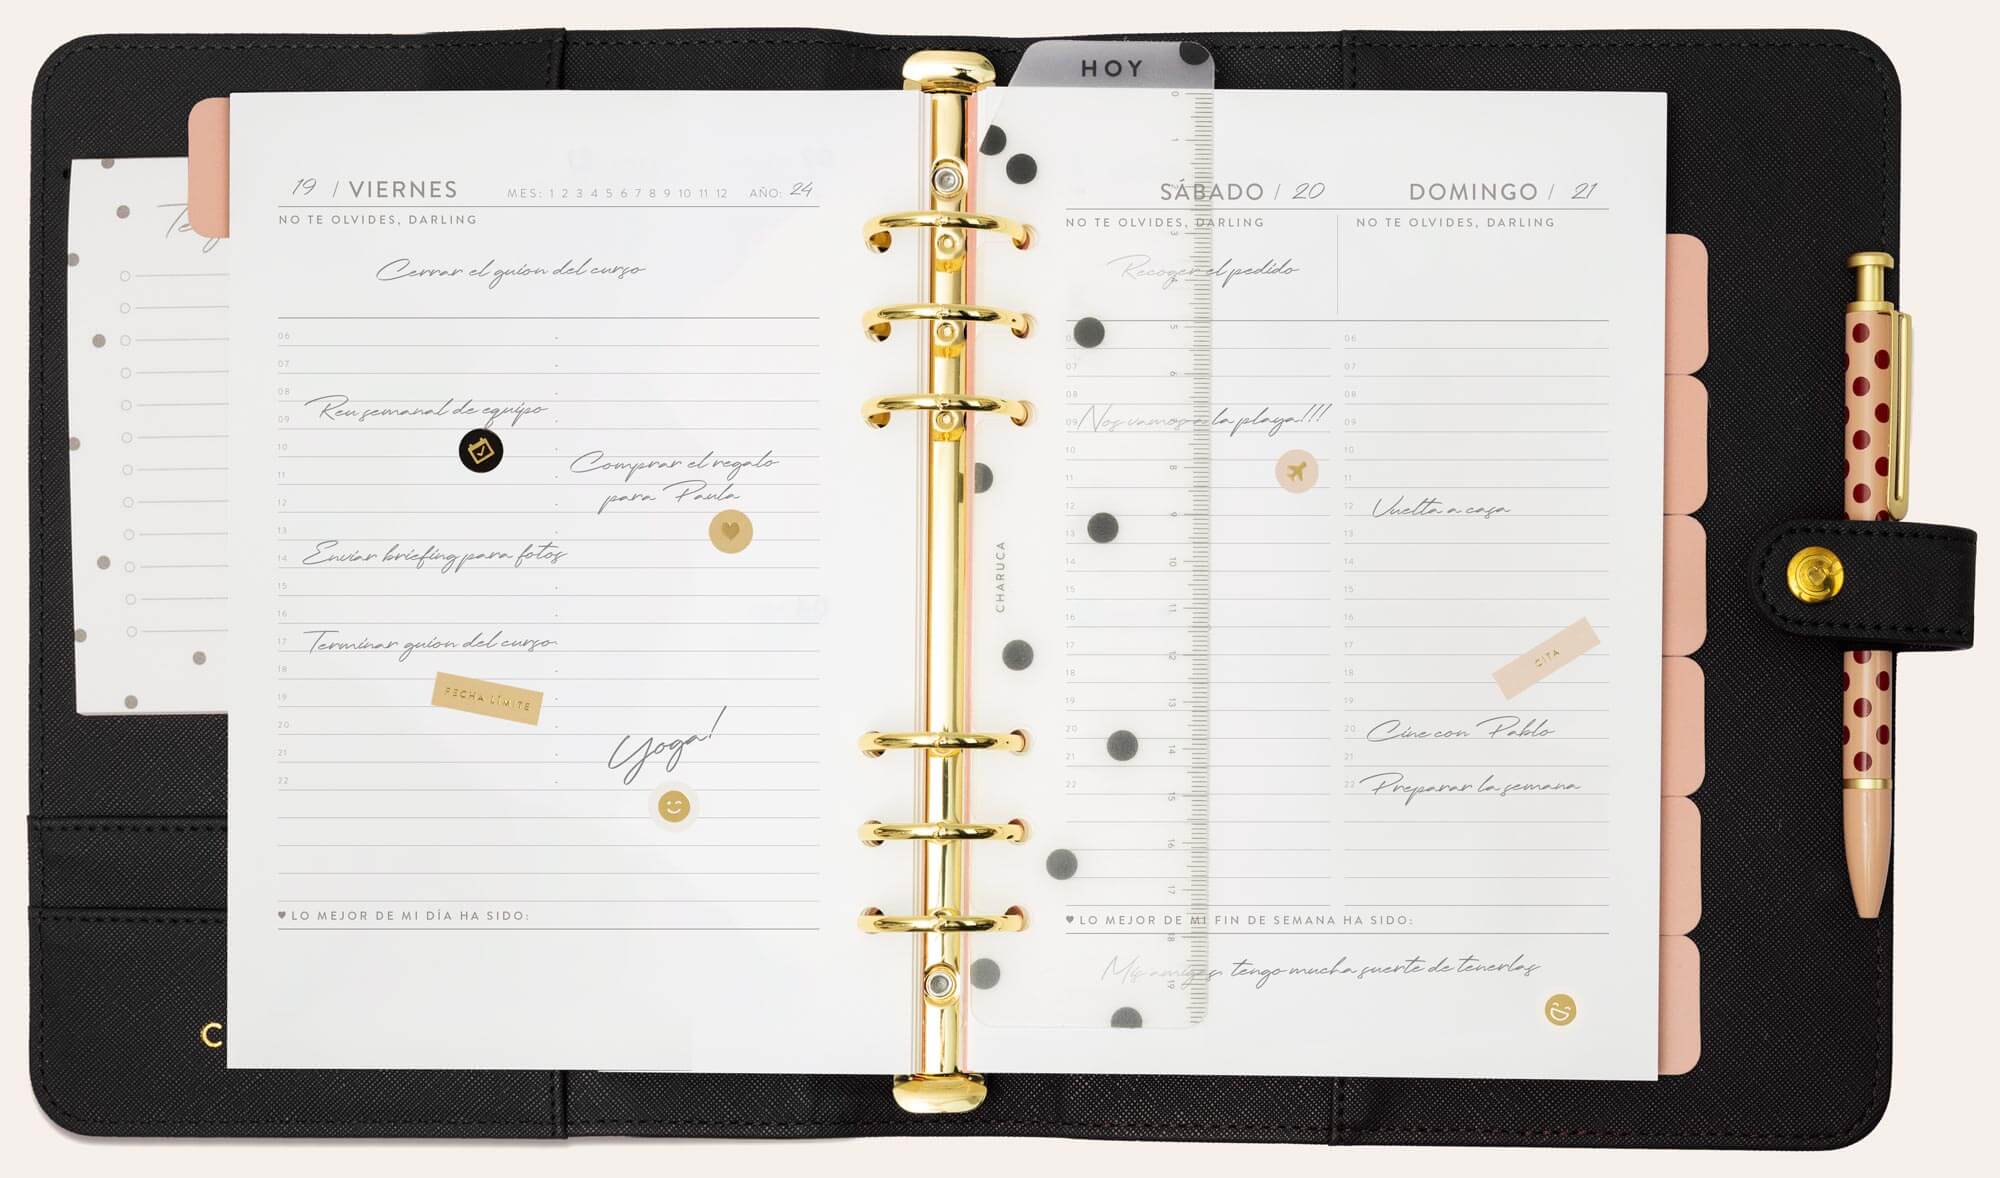 HOY
19 / VIERNES MES: 1 2 3 4 5 6 7 8 9 10 11 12 AÑO: 24
NO TE OLVIDES, DARLING
Cerrar el guion del curso
06
07
08
Reu semanal de equipo
09
10
Comprar el regalo
11
para Paula
12
13
Enviar briefing para fotos
14
15
16
Terminar guion del curso
17
18
FECHA LÍMITE
19
20
Yoga!
21
22
LO MEJOR DE MI DÍA HA SIDO:
CHARUCA
0
1
2
3
4
5
6
7
8
9
10
11
12
13
14
15
16
17
18
19
SÁBADO / 20
NO TE OLVIDES, DARLING
Recoger el pedido
07
08
09 Nos vamos a la playa!!!
10
11
12
13
14
15
16
17
18
19
20
21
22
DOMINGO / 21
NO TE OLVIDES, DARLING
06
07
08
09
10
11
12 Vuelta a casa
13
14
15
16
17
CITA
18
19
20 Cine con Pablo
21
22 Preparar la semana
LO MEJOR DE MI FIN DE SEMANA HA SIDO:
Mis amigas, tengo mucha suerte de tenerlas
C